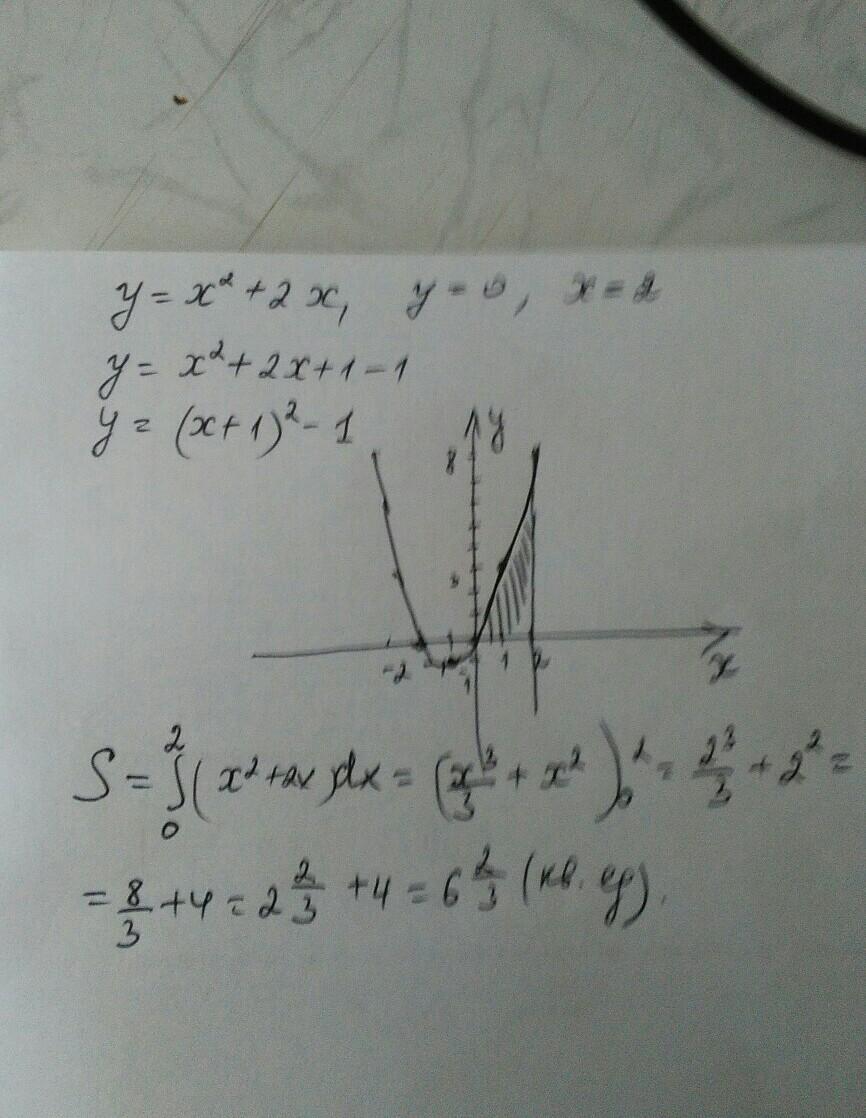 y = x² + 2x, y = 0, x = 2
y = x² + 2x + 1 - 1
y = (x+1)² - 1
y
8
3
-2 -1 1 2
-1
x
S = ∫₀² (x² + 2x)dx = (x³/3 + x²)|₀² = 2³/3 + 2² =
= 8/3 + 4 = 2 2/3 + 4 = 6 2/3 (кв. ед).